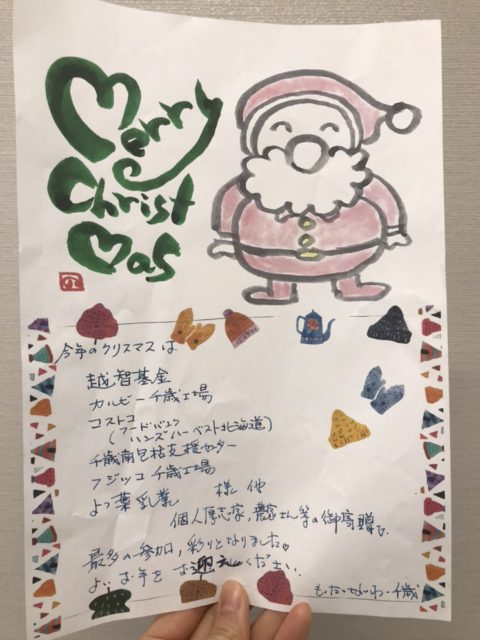 Merry
Christ
mas
今年のクリスマスは
越智基金
カルビー千歳工場
コストコ
(フードバンク
ハンズハーベスト北海道)
千歳南包括支援センター
フジッコ千歳工場
よつ葉乳業 様 他
個人厚志家,農家さん等の御寄贈で
最多の参加,彩りとなりました。
よいお年をお迎えください。
もったいないわ・千歳